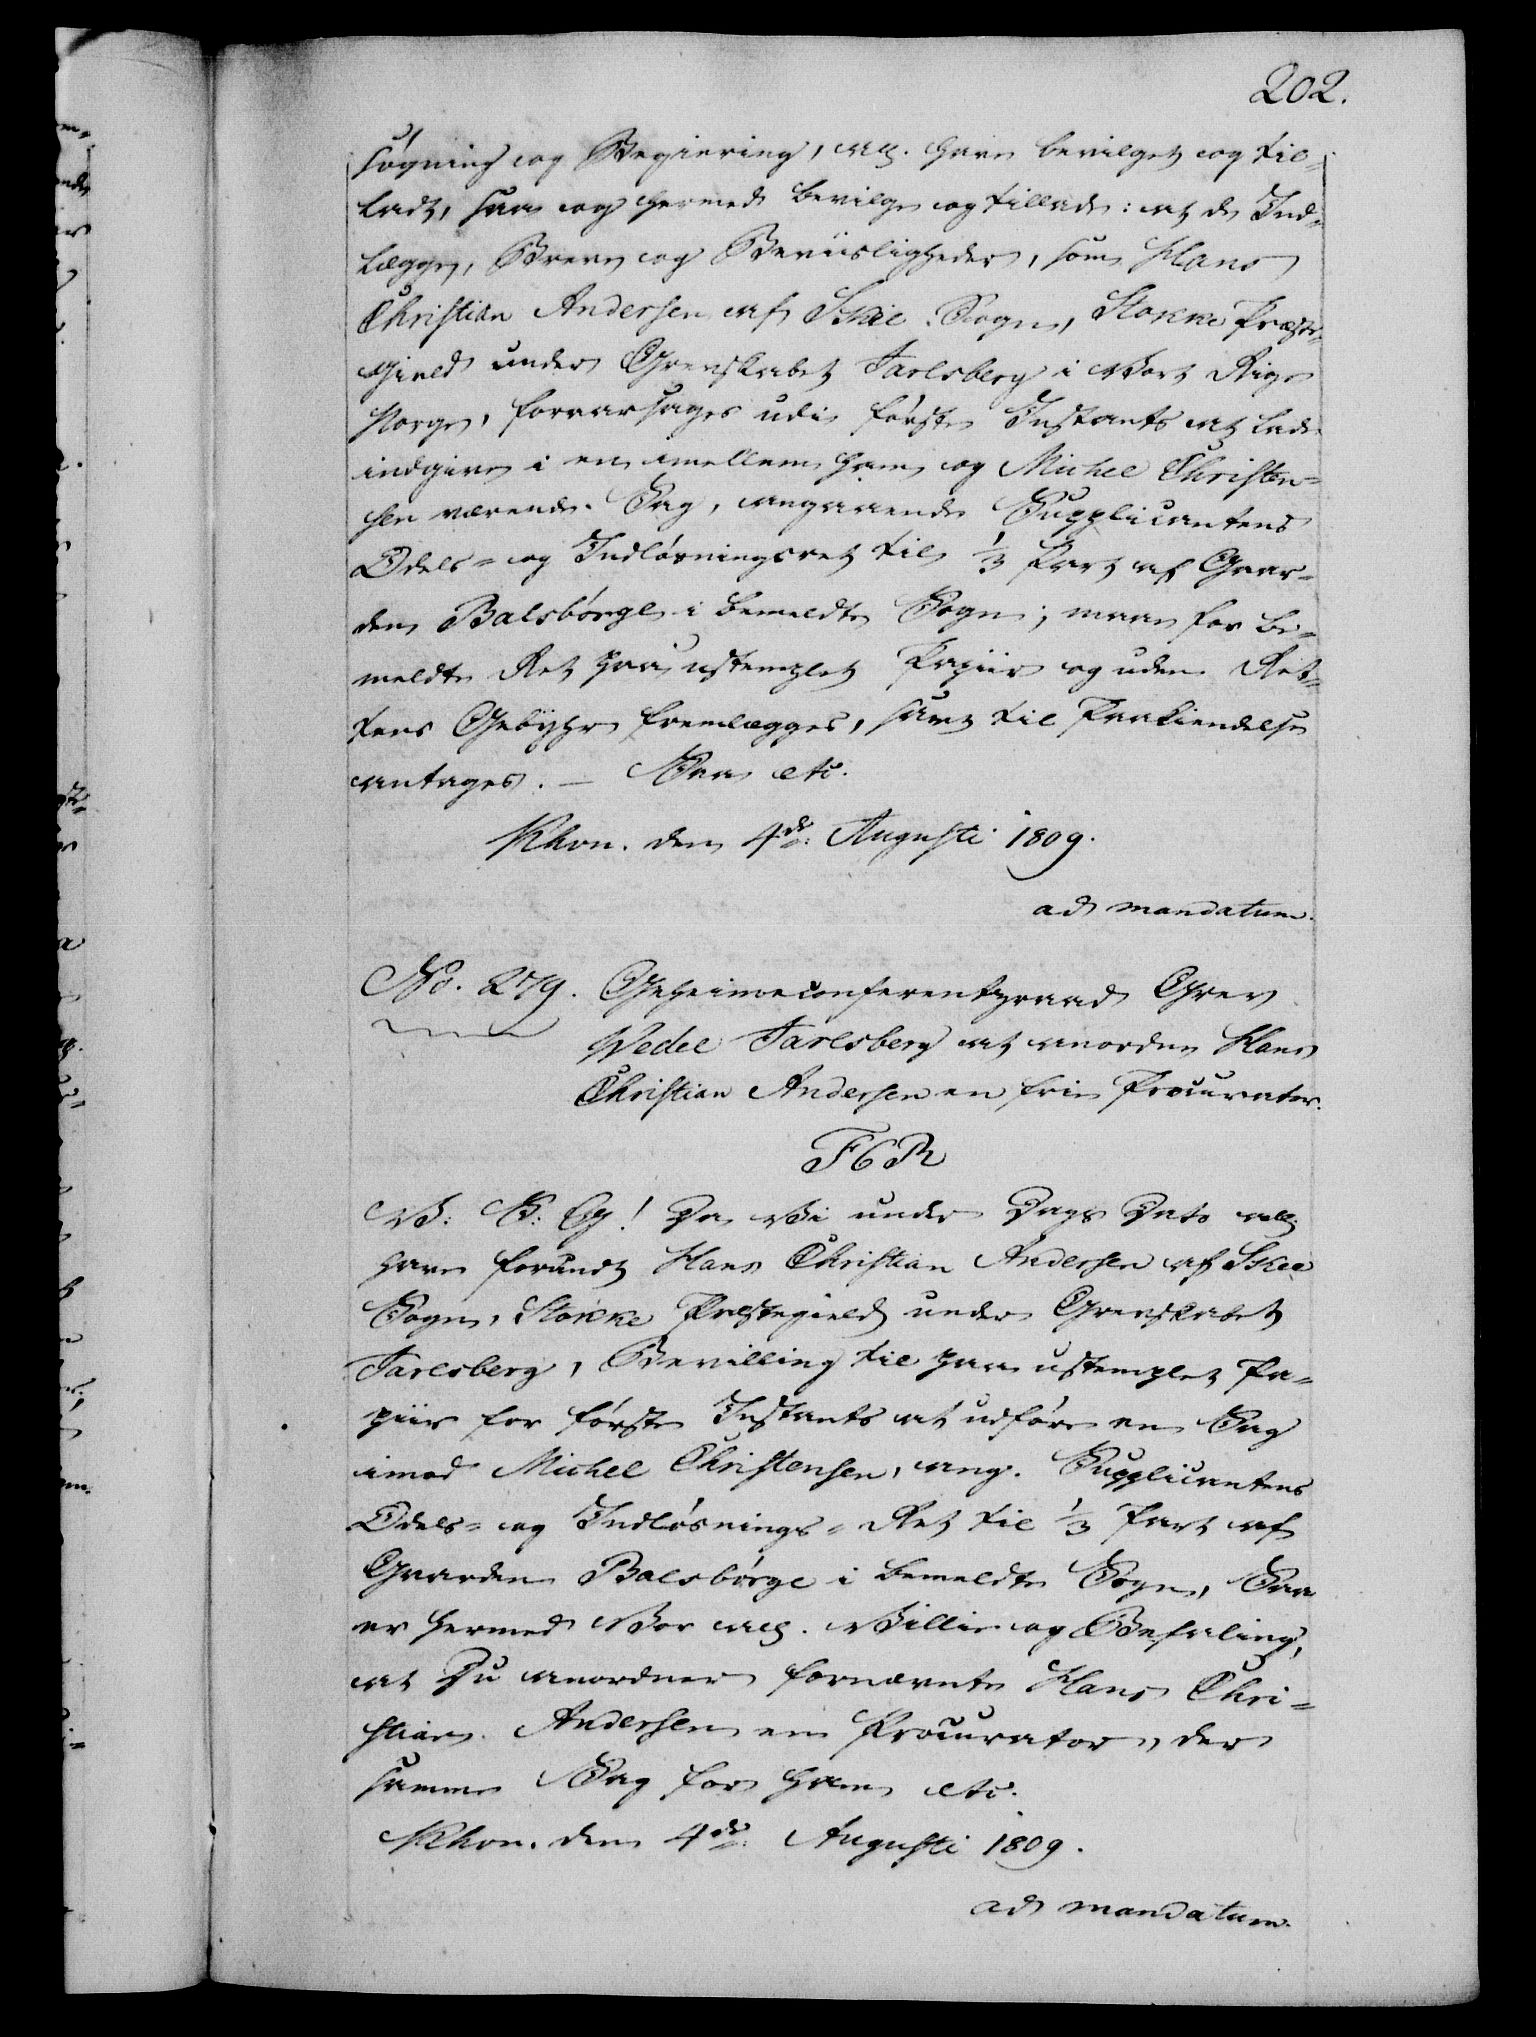 202.
søgning og Begiering, allg. have bevilget og til-
ladt, saa og hermed bevilge og tillade: at de Ind-
læggn, Breve og Beviisligheder, som Hans
Christian Andersen af Skie Sogn, Stokke Præste-
gield under Grevskabet Jarlsberg i Vort Rige
Norge, foraarsages udi første Instants at lade
indgive i en imellem ham og Michel Christen-
sen værende Sag, angaaende Supplicantens
Odels- og Indløsningsret til 1/3 Part af Gaar-
den Balsbørge i bemeldte Sogn; maae for be-
meldte Ret paa ustemplet Papiir og uden Ret-
tens Gebyhr fremlægges, samt til Paakiendelse
antages. — Saa etc.
Khvn. den 4de Augusti 1809.
ad mandatum.
No. 279. Geheimeconferentsraad Grev
Wedel Jarlsberg at anordne Hans
Christian Andersen en frie Procurator.
F6R
V: B: G! Da Vi under Dags Dato allg.
have forundt Hans Christian Andersen af Skee
Sogn, Stokke Præstegield under Grevskabet
Jarlsberg, Bevilling til paa ustemplet Pa-
piir for første Instants at udføre en Sag
imod Michel Christensen, ang. Supplicantens
Odels- og Indløsnings-Ret til 1/3 Part af
Gaarden Balsbørge i bemeldte Sogn, Saa
er hermed Vor allg. Villie og Befaling,
at Du anordner fornævnte Hans Chri-
stian Andersen en Procurator, der
samme Sag for ham etc.
Khvn. den 4de Augusti 1809.
ad mandatum.